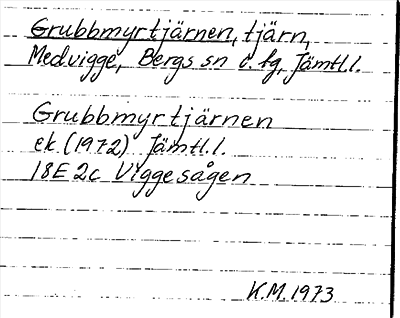 Grubbmyrtjärnen, tjärn,
Medvigge, Bergs sn o. fg, Jämtl.l.
Grubbmyrtjärnen
ek. (1972) Jämtl.l.
18E 2c Viggesågen
K.M. 1973